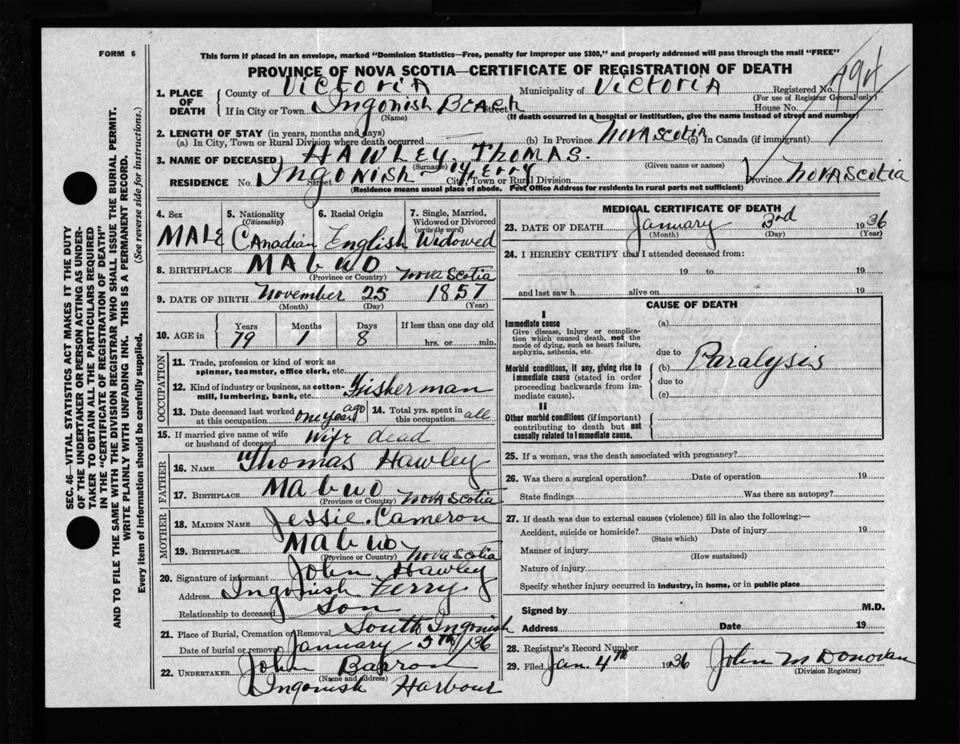 FORM 6
This form if placed in an envelope, marked "Dominion Statistics—Free, penalty for improper use $300," and properly addressed will pass through the mail "FREE"
PROVINCE OF NOVA SCOTIA—CERTIFICATE OF REGISTRATION OF DEATH
SEC. 46—VITAL STATISTICS ACT MAKES IT THE DUTY
OF THE UNDERTAKER OR PERSON ACTING AS UNDER-
TAKER TO OBTAIN ALL THE PARTICULARS REQUIRED
IN THE "CERTIFICATE OF REGISTRATION OF DEATH"
AND TO FILE THE SAME WITH THE DIVISION REGISTRAR WHO SHALL ISSUE THE BURIAL PERMIT.
WRITE PLAINLY WITH UNFADING INK. THIS IS A PERMANENT RECORD.
Every item of information should be carefully supplied. (See reverse side for instructions.)
1. PLACE OF DEATH County of Victoria Municipality of Victoria Registered No.
(For use of Registrar General only)
If in City or Town Ingonish Beach Street House No.
(Name) (If death occurred in a hospital or institution, give the name instead of street and number)
2. LENGTH OF STAY (in years, months and days)
(a) In City, Town or Rural Division where death occurred (b) In Province Nova Scotia (c) In Canada (if immigrant)
3. NAME OF DECEASED HAWLEY, Thomas.
(Surname) (Given name or names)
RESIDENCE No. Ingonish Street Ferry City, Town or Rural Division Province Nova Scotia
(Residence means usual place of abode. Post Office Address for residents in rural parts not sufficient)
4. Sex 5. Nationality (Citizenship) 6. Racial Origin 7. Single, Married, Widowed or Divorced (write the word)
MALE Canadian English Widowed
8. BIRTHPLACE Mabwo Nova Scotia
(Province or Country)
9. DATE OF BIRTH November 25 1857
(Month) (Day) (Year)
10. AGE in Years Months Days If less than one day old
79 1 8 hrs. or min.
OCCUPATION
11. Trade, profession or kind of work as
spinner, teamster, office clerk, etc.
12. Kind of industry or business, as cotton-
mill, lumbering, bank, etc. Fisherman
13. Date deceased last worked at this occupation one year ago 14. Total yrs. spent in this occupation all
15. If married give name of wife or husband of deceased wife dead
FATHER
16. NAME Thomas Hawley
17. BIRTHPLACE Mabwo Nova Scotia
(Province or Country)
MOTHER
18. MAIDEN NAME Jessie. Cameron
19. BIRTHPLACE Mabwo Nova Scotia
(Province or Country)
20. Signature of informant John Hawley
Address Ingonish Ferry
Relationship to deceased Son
21. Place of Burial, Cremation or Removal South Ingonish
Date of burial or removal January 5th/36
22. UNDERTAKER John Barron
(Name and address)
Ingonish Harbour
MEDICAL CERTIFICATE OF DEATH
23. DATE OF DEATH January 3rd 1936
(Month) (Day) (Year)
24. I HEREBY CERTIFY that I attended deceased from:
19 to 19
and last saw h alive on 19
CAUSE OF DEATH
I
Immediate cause
Give disease, injury or complica-
tion which caused death, not the
mode of dying, such as heart failure,
asphyxia, asthenia, etc.
(a)
due to
Morbid conditions, if any, giving rise to
immediate cause (stated in order
proceeding backwards from im-
mediate cause).
(b) Paralysis
due to
(c)
II
Other morbid conditions (if important)
contributing to death but not
causally related to immediate cause.
25. If a woman, was the death associated with pregnancy?
26. Was there a surgical operation? Date of operation 19
State findings Was there an autopsy?
27. If death was due to external causes (violence) fill in also the following:—
Accident, suicide or homicide? Date of injury 19
(State which)
Manner of injury
(How sustained)
Nature of injury
Specify whether injury occurred in industry, in home, or in public place
Signed by M.D.
Address Date 19
28. Registrar's Record Number
29. Filed Jan. 4th 1936 John McDonovan
(Division Registrar)